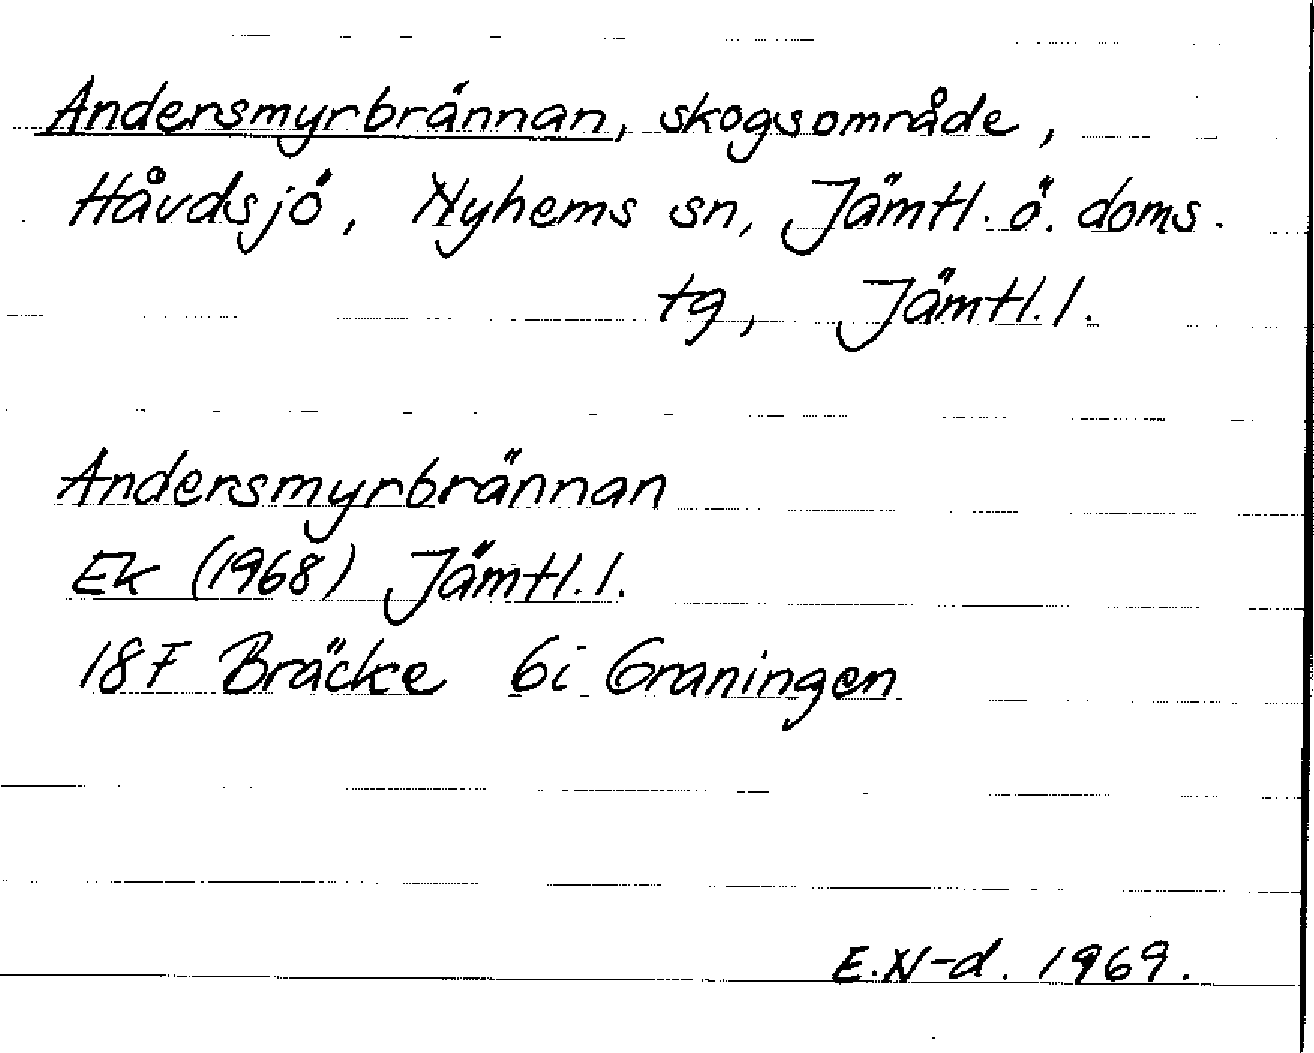 Andersmyrbrännan, skogsområde,
Håvdsjö, Nyhems sn, Jämtl. ö. doms.
tg, Jämtl. l.
Andersmyrbrännan
Ek (1968) Jämtl. l.
18F Bräcke 6i Graningen
E.N-d. 1969.